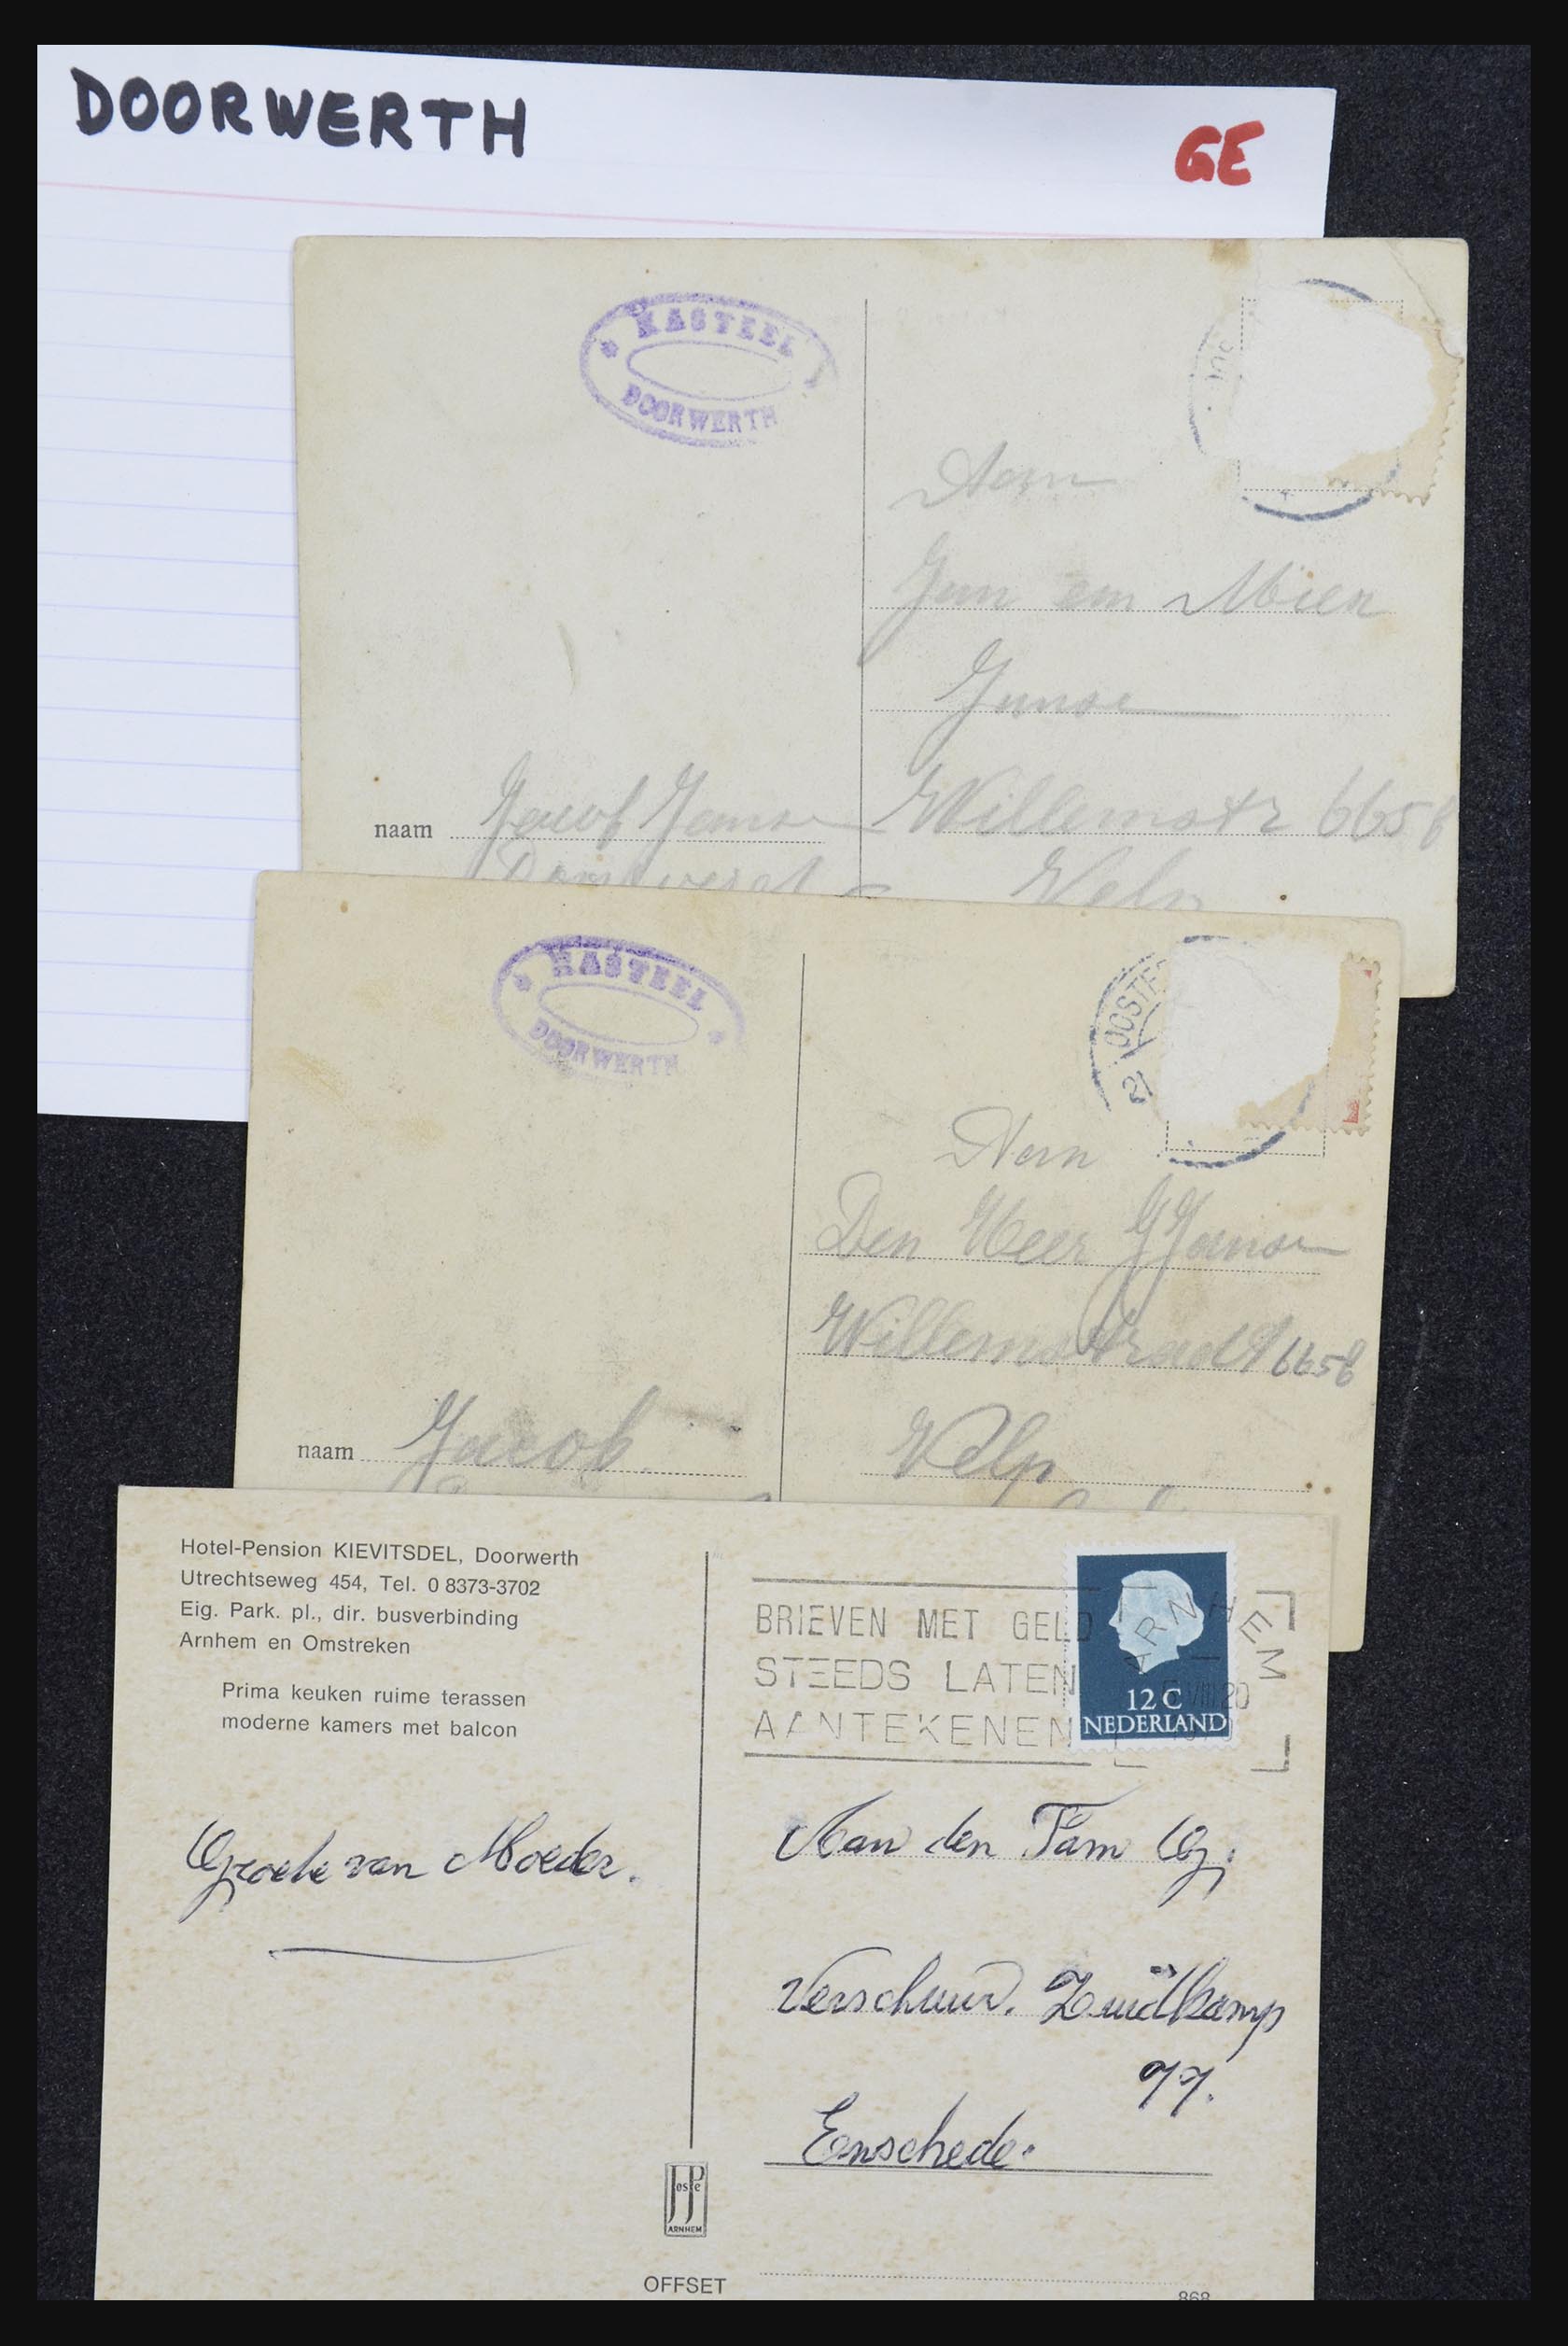 DOORWERTH
GE
KASTEEL
DOORWERTH
Aan
Jan en Mien
Janse
naam Jacob Janse
Willemstr 665 b
Velp
KASTEEL
DOORWERTH
OOSTE
Den Heer G Janse
Willemstraat 665b
naam Jacob
Velp
Hotel-Pension KIEVITSDEL, Doorwerth
Utrechtseweg 454, Tel. 0 8373-3702
Eig. Park. pl., dir. busverbinding
Arnhem en Omstreken
Prima keuken ruime terassen
moderne kamers met balcon
BRIEVEN MET GELD
STEEDS LATEN
AANTEKENEN
ARNHEM
12 C
NEDERLAND
Groete van Moeder.
Aan den Fam G.
Verschuur. Zuidkamp
77.
Enschede.
JosPe
ARNHEM
OFFSET
868